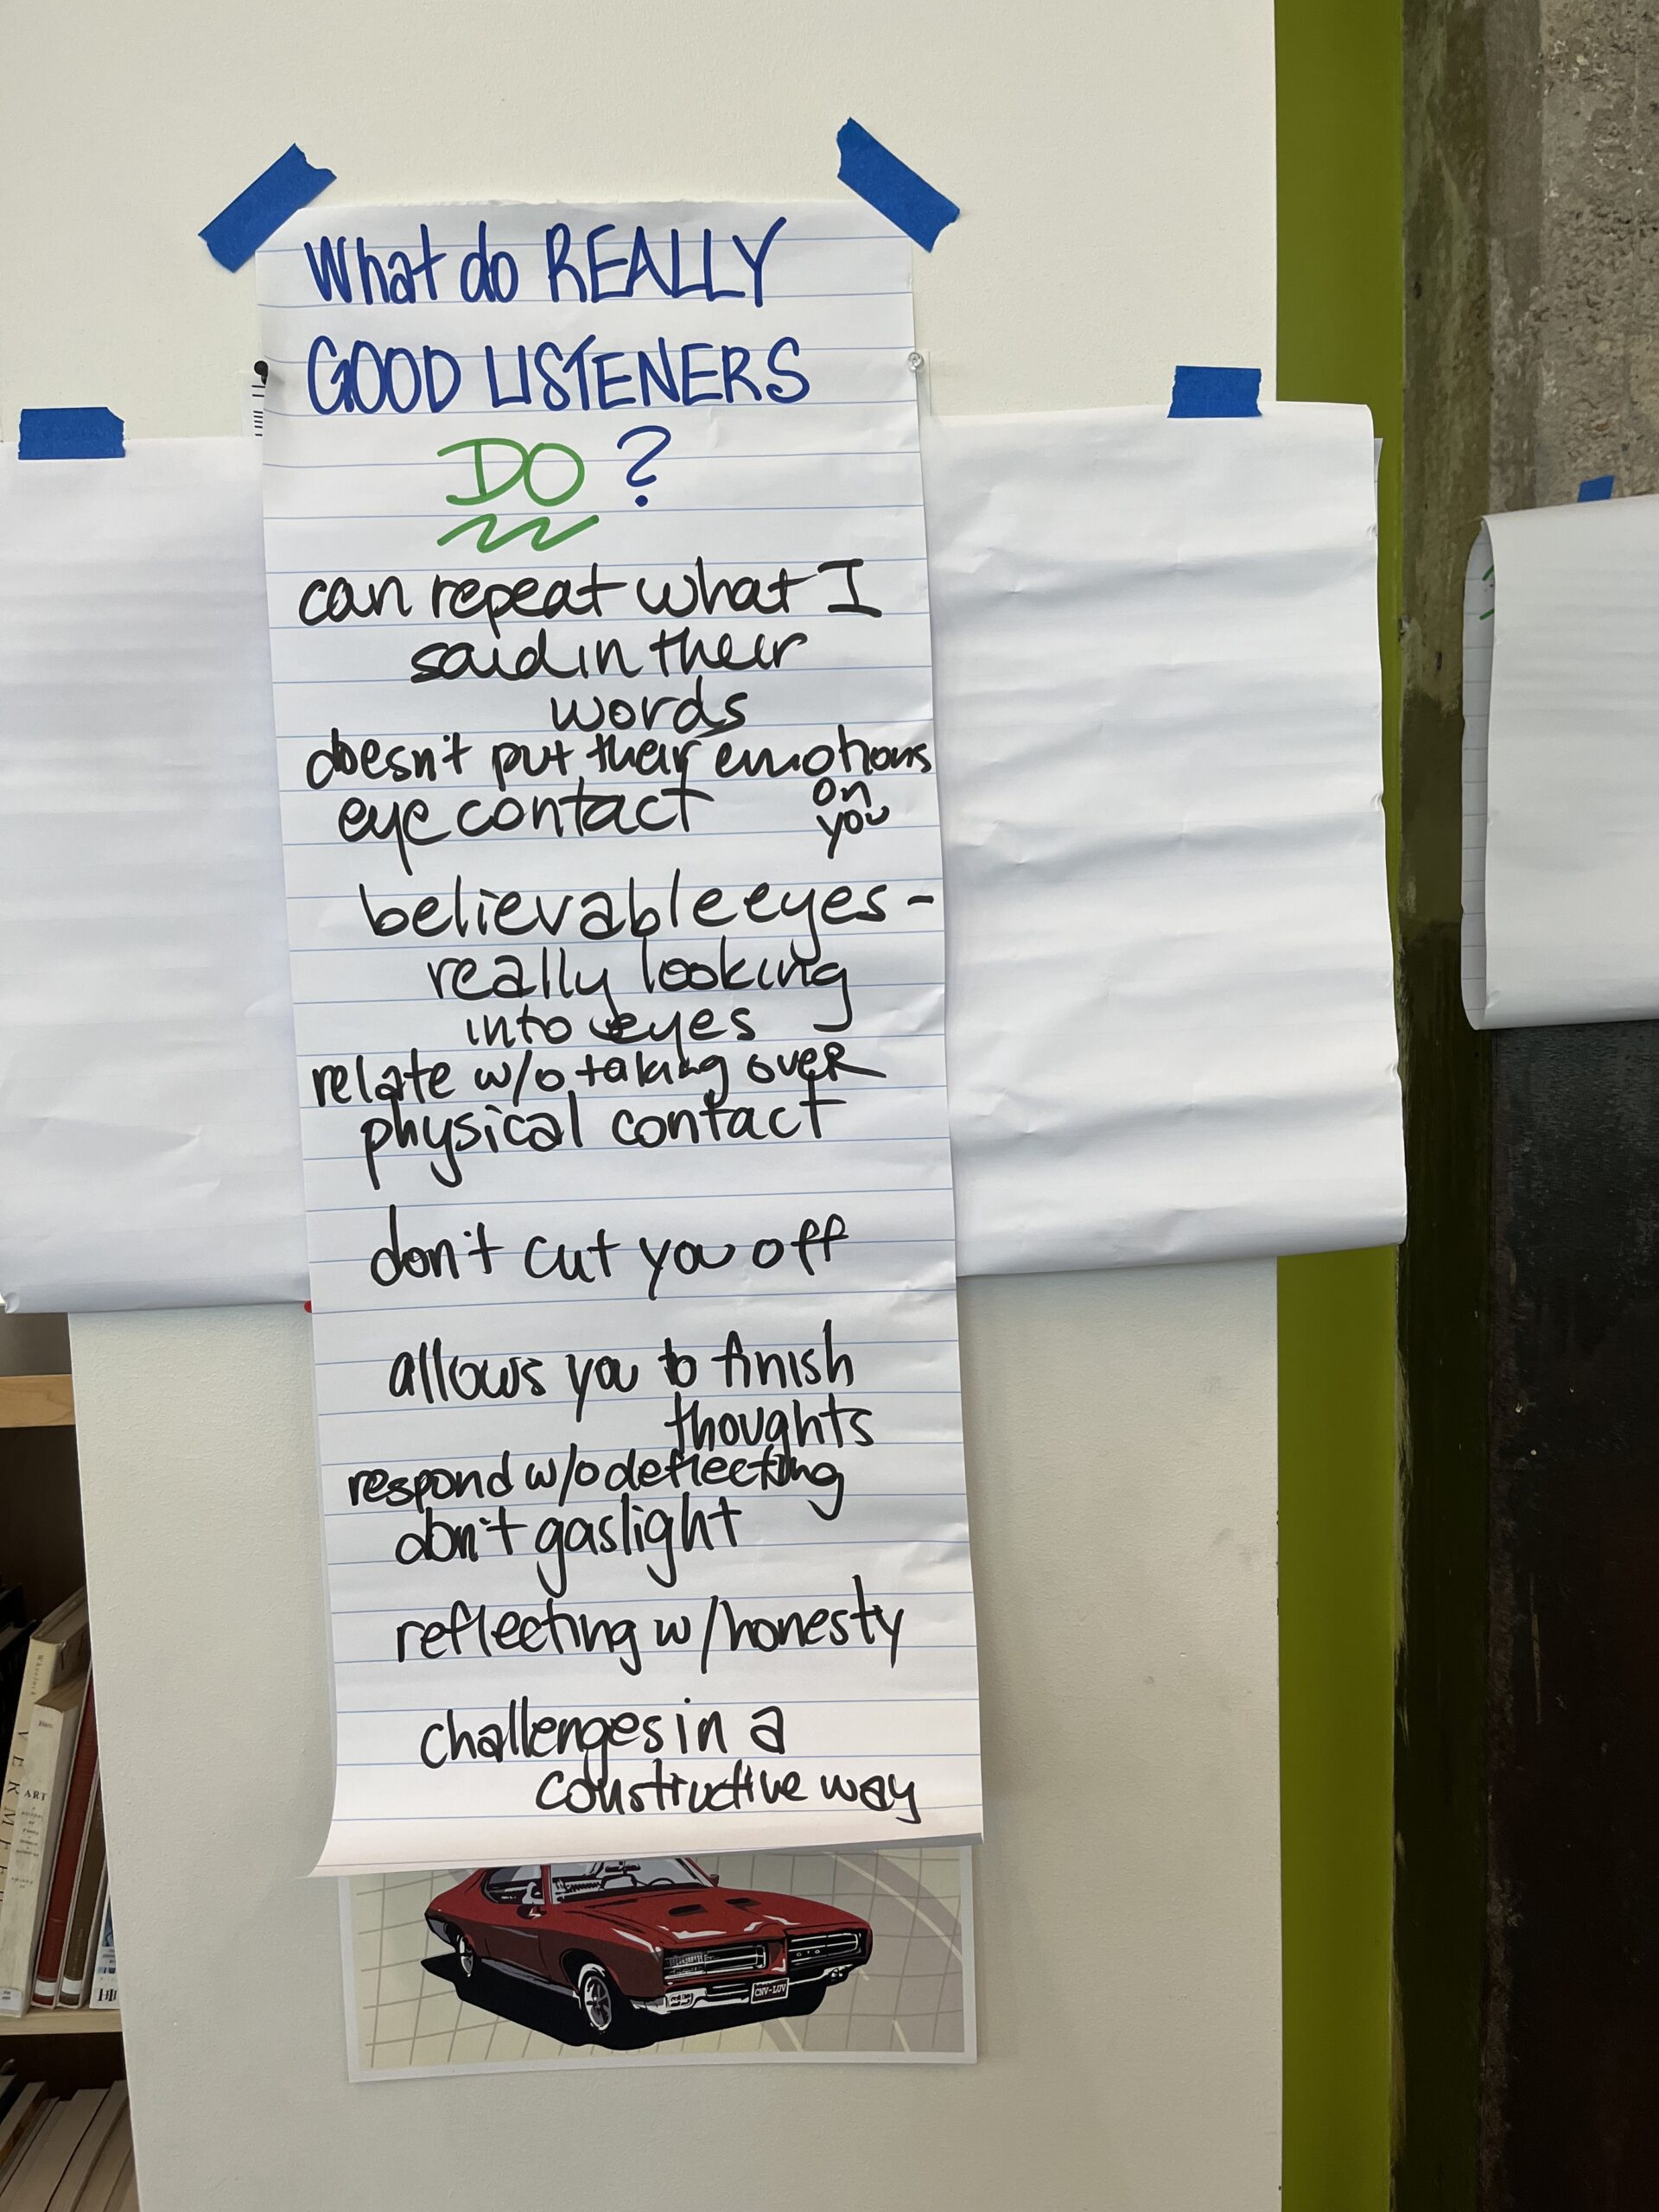 What do REALLY
GOOD LISTENERS
DO ?
can repeat what I
said in their
words
doesn't put their emotions
on
you
eye contact
believable eyes -
really looking
into eyes
relate w/o taking over
physical contact
don't cut you off
allows you to finish
thoughts
respond w/o deflecting
don't gaslight
reflecting w/ honesty
challenges in a
constructive way
GTO
CNV-LUV
ART